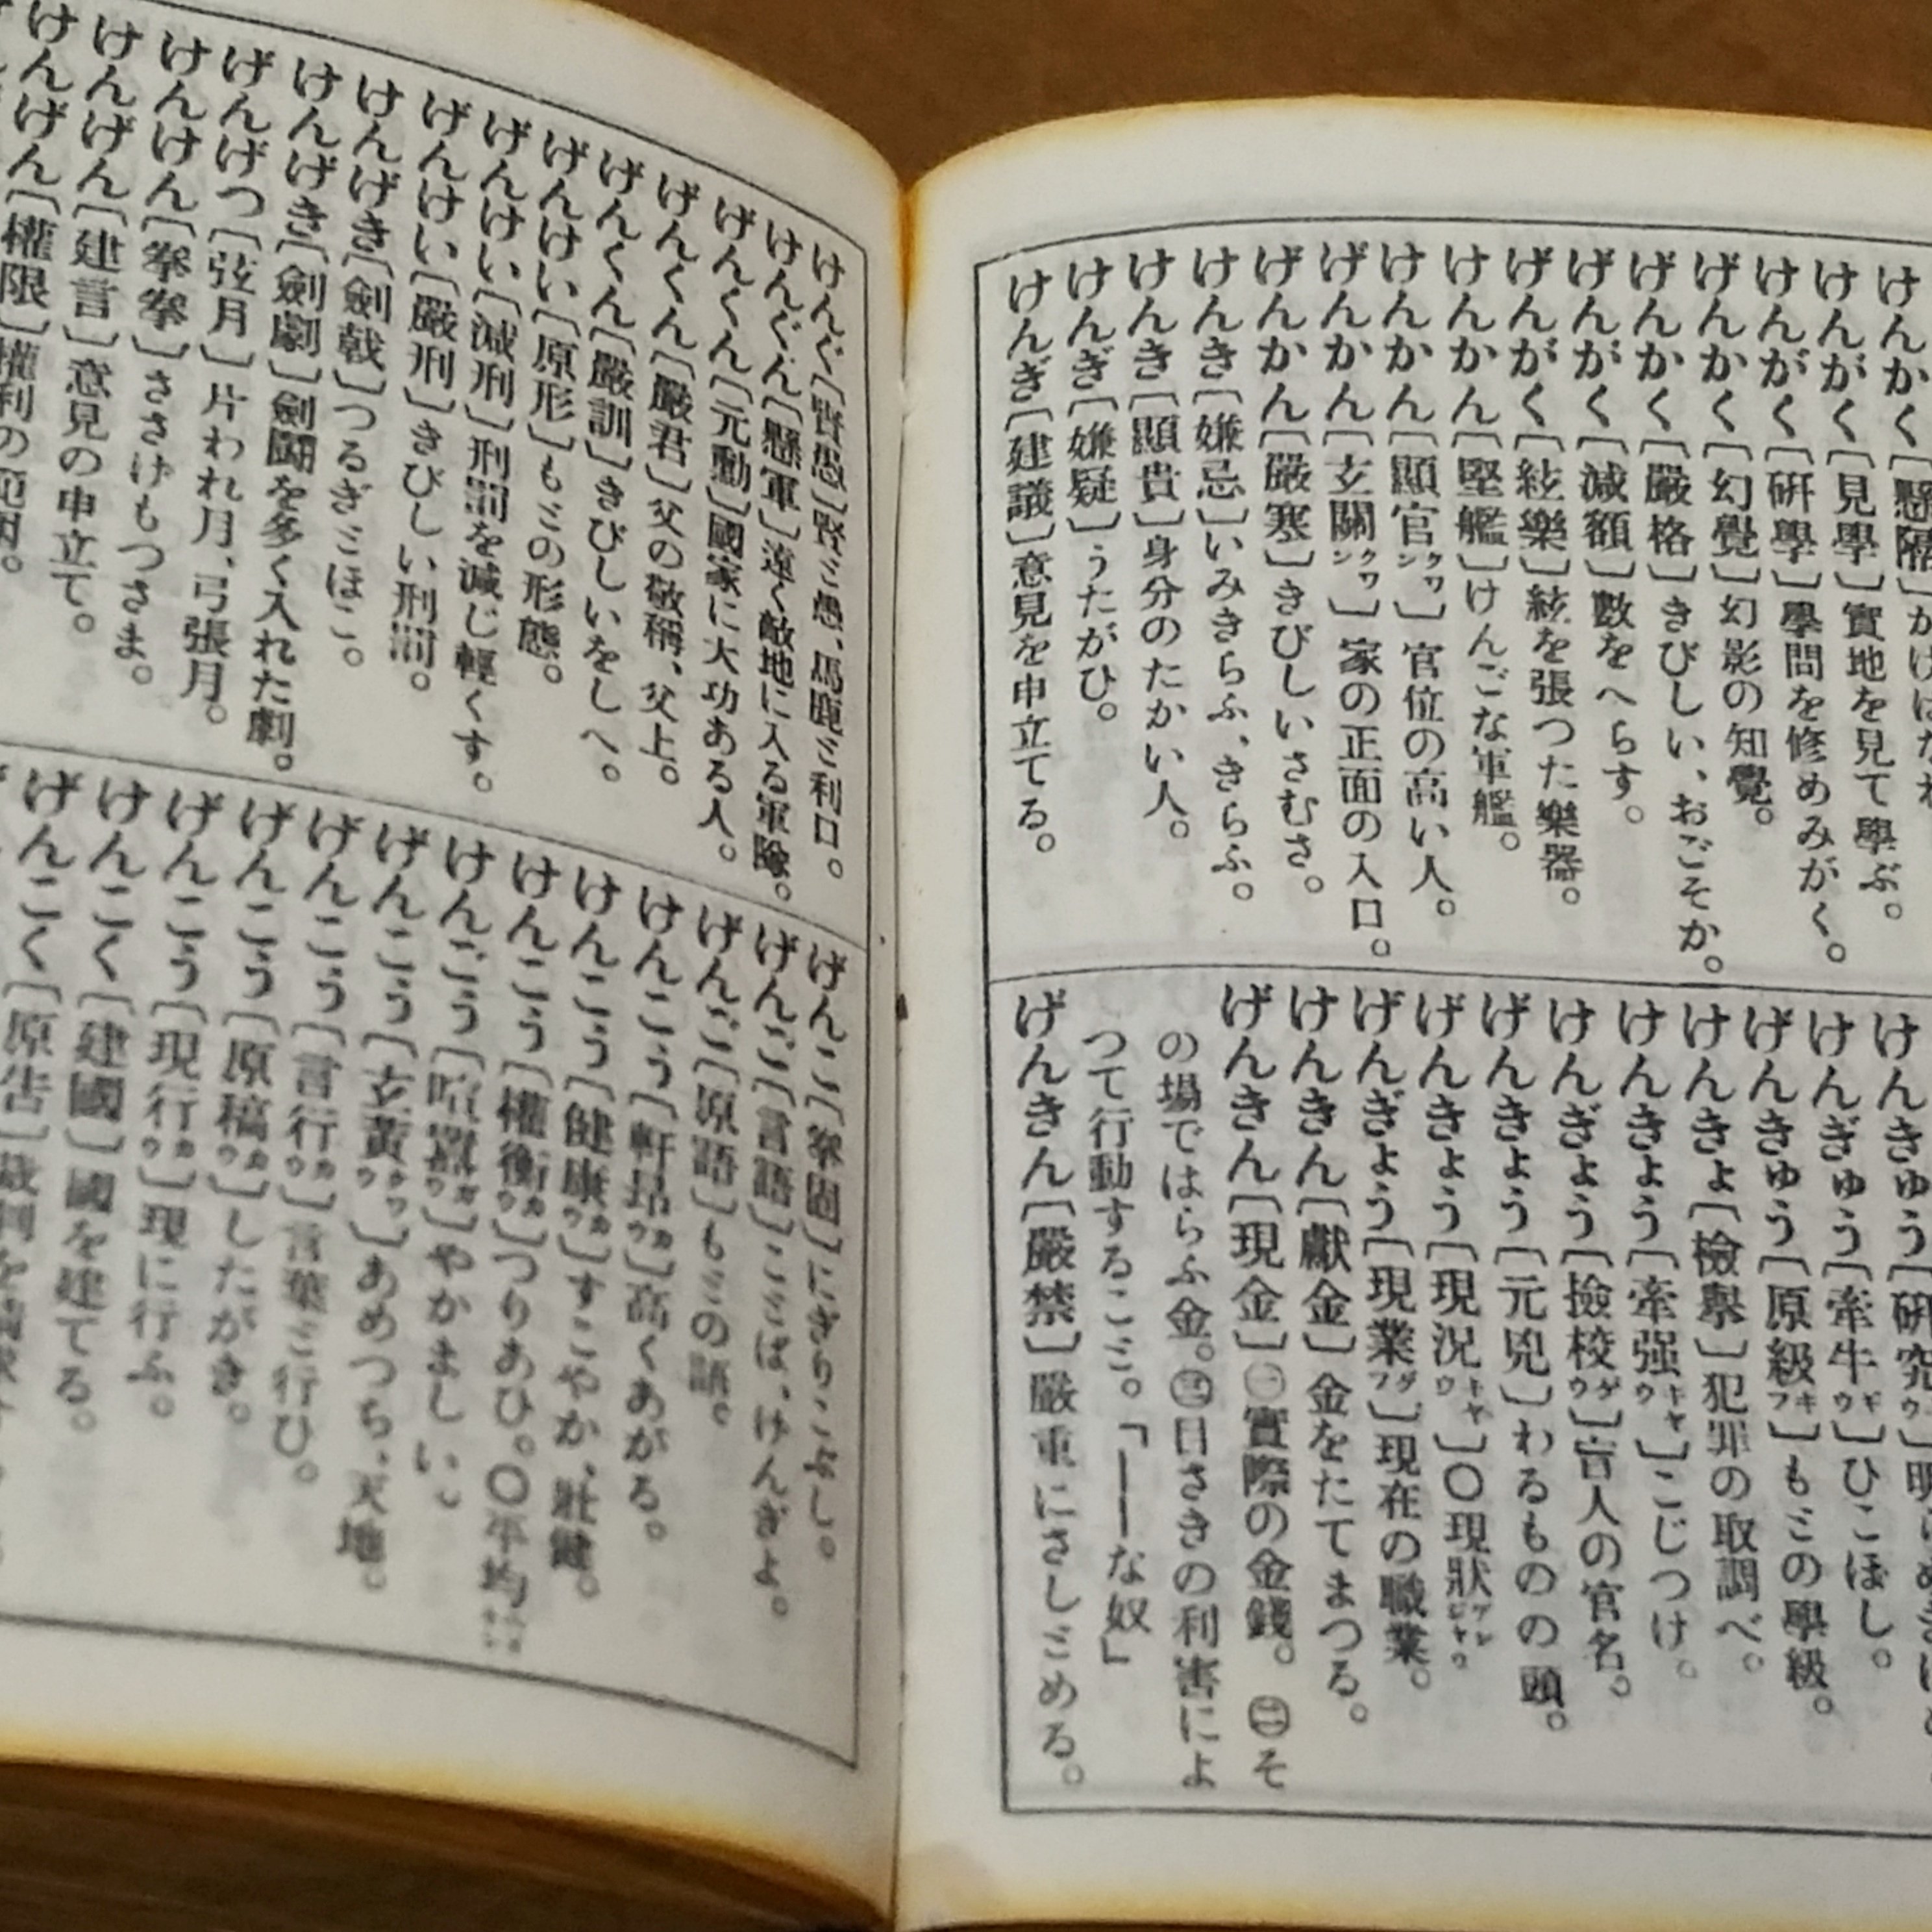 けんかく〔懸隔〕
けんがく〔見學〕實地を見て學ぶ。
けんがく〔硏學〕學問を修めみがく。
げんかく〔幻覺〕幻影の知覺。
げんかく〔嚴格〕きびしい、おごそか。
げんがく〔減額〕數をへらす。
げんがく〔絃樂〕絃を張つた樂器。
けんかん〔堅艦〕けんごな軍艦。
けんかん〔顯官クワン〕官位の高い人。
げんかん〔玄關クワン〕家の正面の入口。
げんかん〔嚴寒〕きびしいさむさ。
けんき〔嫌忌〕いみきらふ、きらふ。
けんき〔顯貴〕身分のたかい人。
けんぎ〔嫌疑〕うたがひ。
けんぎ〔建議〕意見を申立てる。
けんきゅう〔硏究
けんぎゅう〔牽牛ギウ〕ひこぼし。
げんきゅう〔原級キフ〕もとの學級。
けんきょ〔檢擧〕犯罪の取調べ。
けんきょう〔牽强キヤウ〕こじつけ。
けんぎょう〔撿校ゲウ〕盲人の官名。
げんきょう〔元兇〕わるものの頭。
げんきょう〔現況キヤウ〕〇現狀
げんぎょう〔現業ゲフ〕現在の職業。
けんきん〔獻金〕金をたてまつる。
げんきん〔現金〕㊀實際の金錢。㊁そ
の場ではらふ金。㊂目さきの利害によ
つて行動するこヾ。「――な奴」
げんきん〔嚴禁〕嚴重にさしとめる。
けんぐ〔賢愚〕賢と愚、馬鹿と利口。
けんぐん〔懸軍〕遠く敵地に入る軍隊。
げんくん〔元勳〕國家に大功ある人。
げんくん〔嚴君〕父の敬稱、父上。
げんくん〔嚴訓〕きびしいをしへ。
げんけい〔原形〕もとの形態。
げんけい〔減刑〕刑罰を減じ輕くす。
げんけい〔嚴刑〕きびしい刑罰。
けんげき〔劍戟〕つるぎとほこ。
けんげき〔劍劇〕劍鬪を多く入れた劇。
げんげつ〔弦月〕片われ月、弓張月。
けんけん〔拳拳〕ささげもつさま。
けんげん〔建言〕意見の申立て。
けんげん〔權限〕權利の範囲。
げんこ〔拳固〕にぎりこぶし。
げんご〔言語〕ことば、げんぎよ。
げんご〔原語〕もとの語。
けんこう〔軒昂カウ〕高くあがる。
けんこう〔健康カウ〕すこやか、壯健。
けんこう〔權衡カウ〕つりあひ。〇平均
けんごう〔喧囂ガウ〕やかましい。
げんこう〔玄黃クワウ〕あめつち、天地。
げんこう〔言行カウ〕言葉と行ひ。
げんこう〔原稿カウ〕したがき。
げんこう〔現行カウ〕現に行ふ。
けんこく〔建國〕國を建てる。
げんこく〔原告〕裁判を